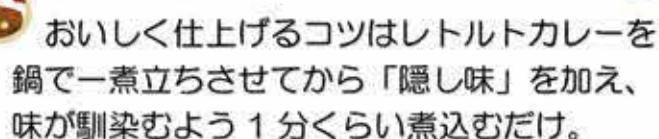 おいしく仕上げるコツはレトルトカレーを
鍋で一煮立ちさせてから「隠し味」を加え、
味が馴染むよう1分くらい煮込むだけ。